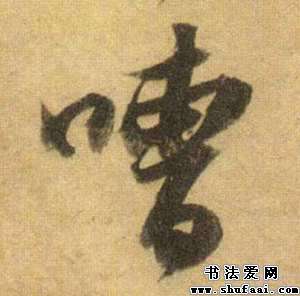 嘈
书法爱网
www.shufaai.com